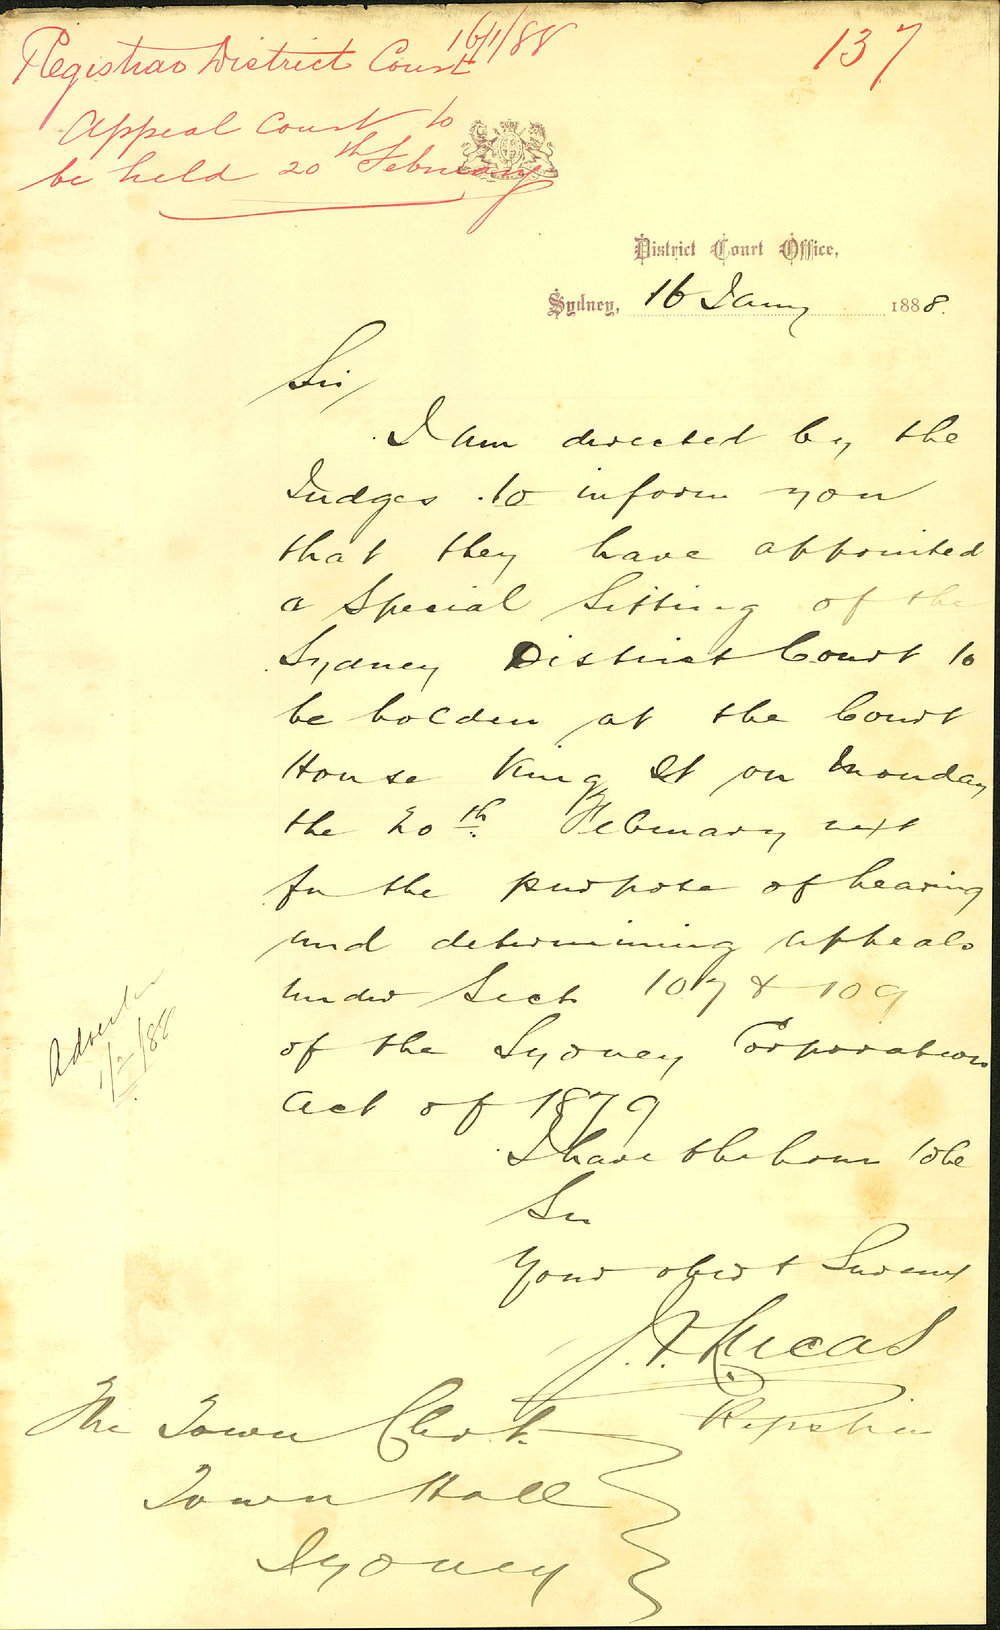 16/1/88
137
Registrar District Court
Appeal Court to
be held 20th February
District Court Office,
Sydney, 16 Jany 1888.
Sir,
I am directed by the
Judges to inform you
that they have appointed
a Special Sitting of the
Sydney District Court to
be holden at the Court
House King St on Monday
the 20th February next
for the purpose of hearing
and determining appeals
under Sect 107 & 109
of the Sydney Corporation
Act of 1879
I have the honor to be
Sir
Your obedt Servant
Lucas
Registrar
Advertise
1/2/88
The Town Clerk
Town Hall
Sydney